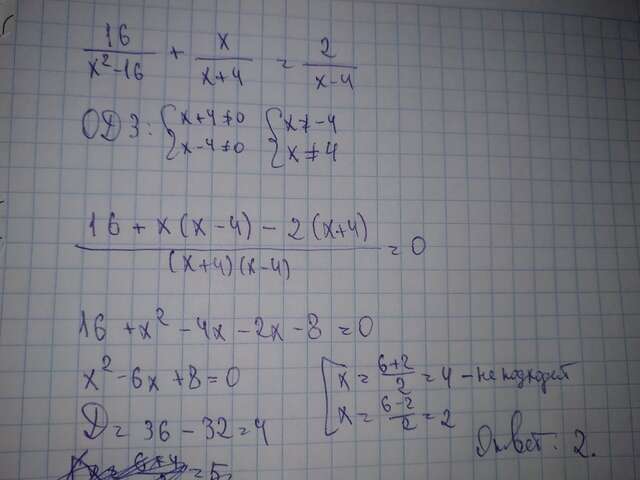 16/(x²-16) + x/(x+4) = 2/(x-4)
ОДЗ: { x+4≠0 { x≠-4
{ x-4≠0 { x≠4
(16 + x(x-4) - 2(x+4))/((x+4)(x-4)) = 0
16 + x² - 4x - 2x - 8 = 0
x² - 6x + 8 = 0
D = 36 - 32 = 4
[ x = (6+2)/2 = 4 - не подходит
[ x = (6-2)/2 = 2
Ответ: 2.
= 5